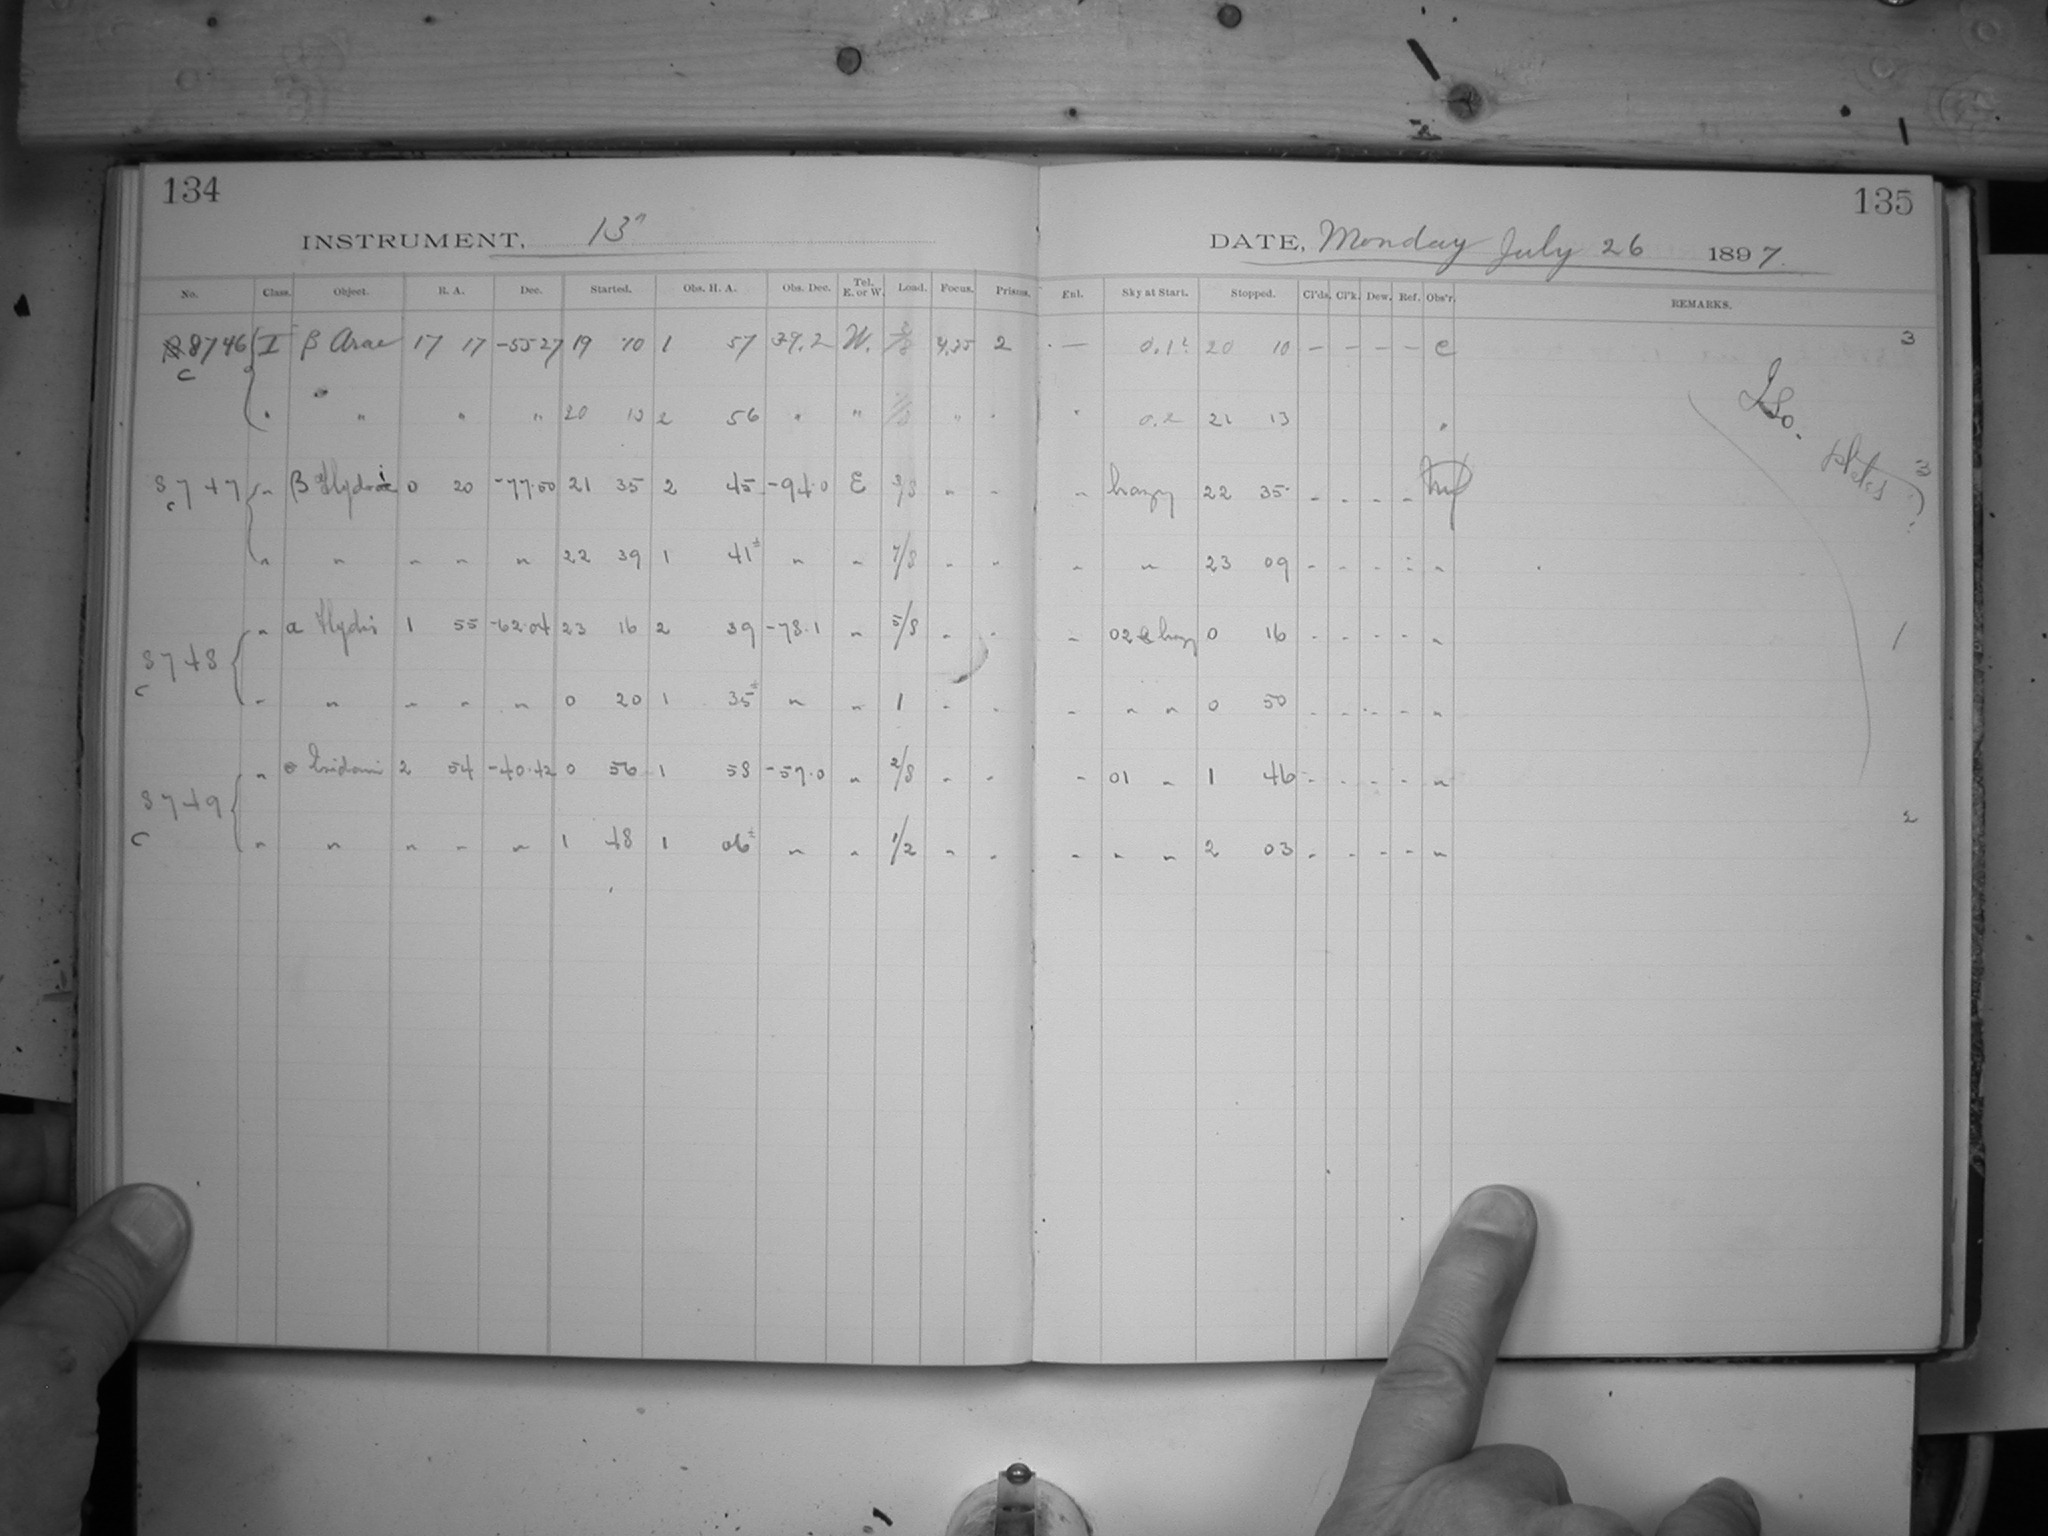 134
INSTRUMENT, 13"
No. Class. Object. R. A. Dec. Started. Obs. H. A. Obs. Dec. Tel. E. or W. Load. Focus. Prisms.
8746 I β Arae 17 17 -55 27 19 10 1 57 39.2 W. 4.25 2
C
" " " " 20 13 2 56 " " " "
8747 " β Hydri 0 20 -77.50 21 35 2 45 -94.0 E " "
C
" " " " " 22 39 1 41± " " 7/8 " "
8748 " α Hydri 1 55 -62.04 23 16 2 39 -78.1 " 5/8 " "
C
" " " " " 0 20 1 35± " " 1 " "
8749 " θ Eridani 2 54 -40.42 0 56 1 58 -57.0 " 2/8 " "
C
" " " " " 1 48 1 06± " " 1/2 " "
135
DATE, Monday July 26 1897.
Enl. Sky at Start. Stopped. Cl'ds. Cl'k. Dew. Ref. Obs'r. REMARKS.
— 0.1? 20 10 – – – – C 3
" 0.2 21 13 "
Iso. plates ?
" hazy 22 35 - - - - 3
" " 23 09 - - - - "
" 02 & hazy 0 16 - - - - " 1
" " " 0 50 - - - - "
" 01 " 1 46 - - - - "
2
" " " 2 03 - - - - "